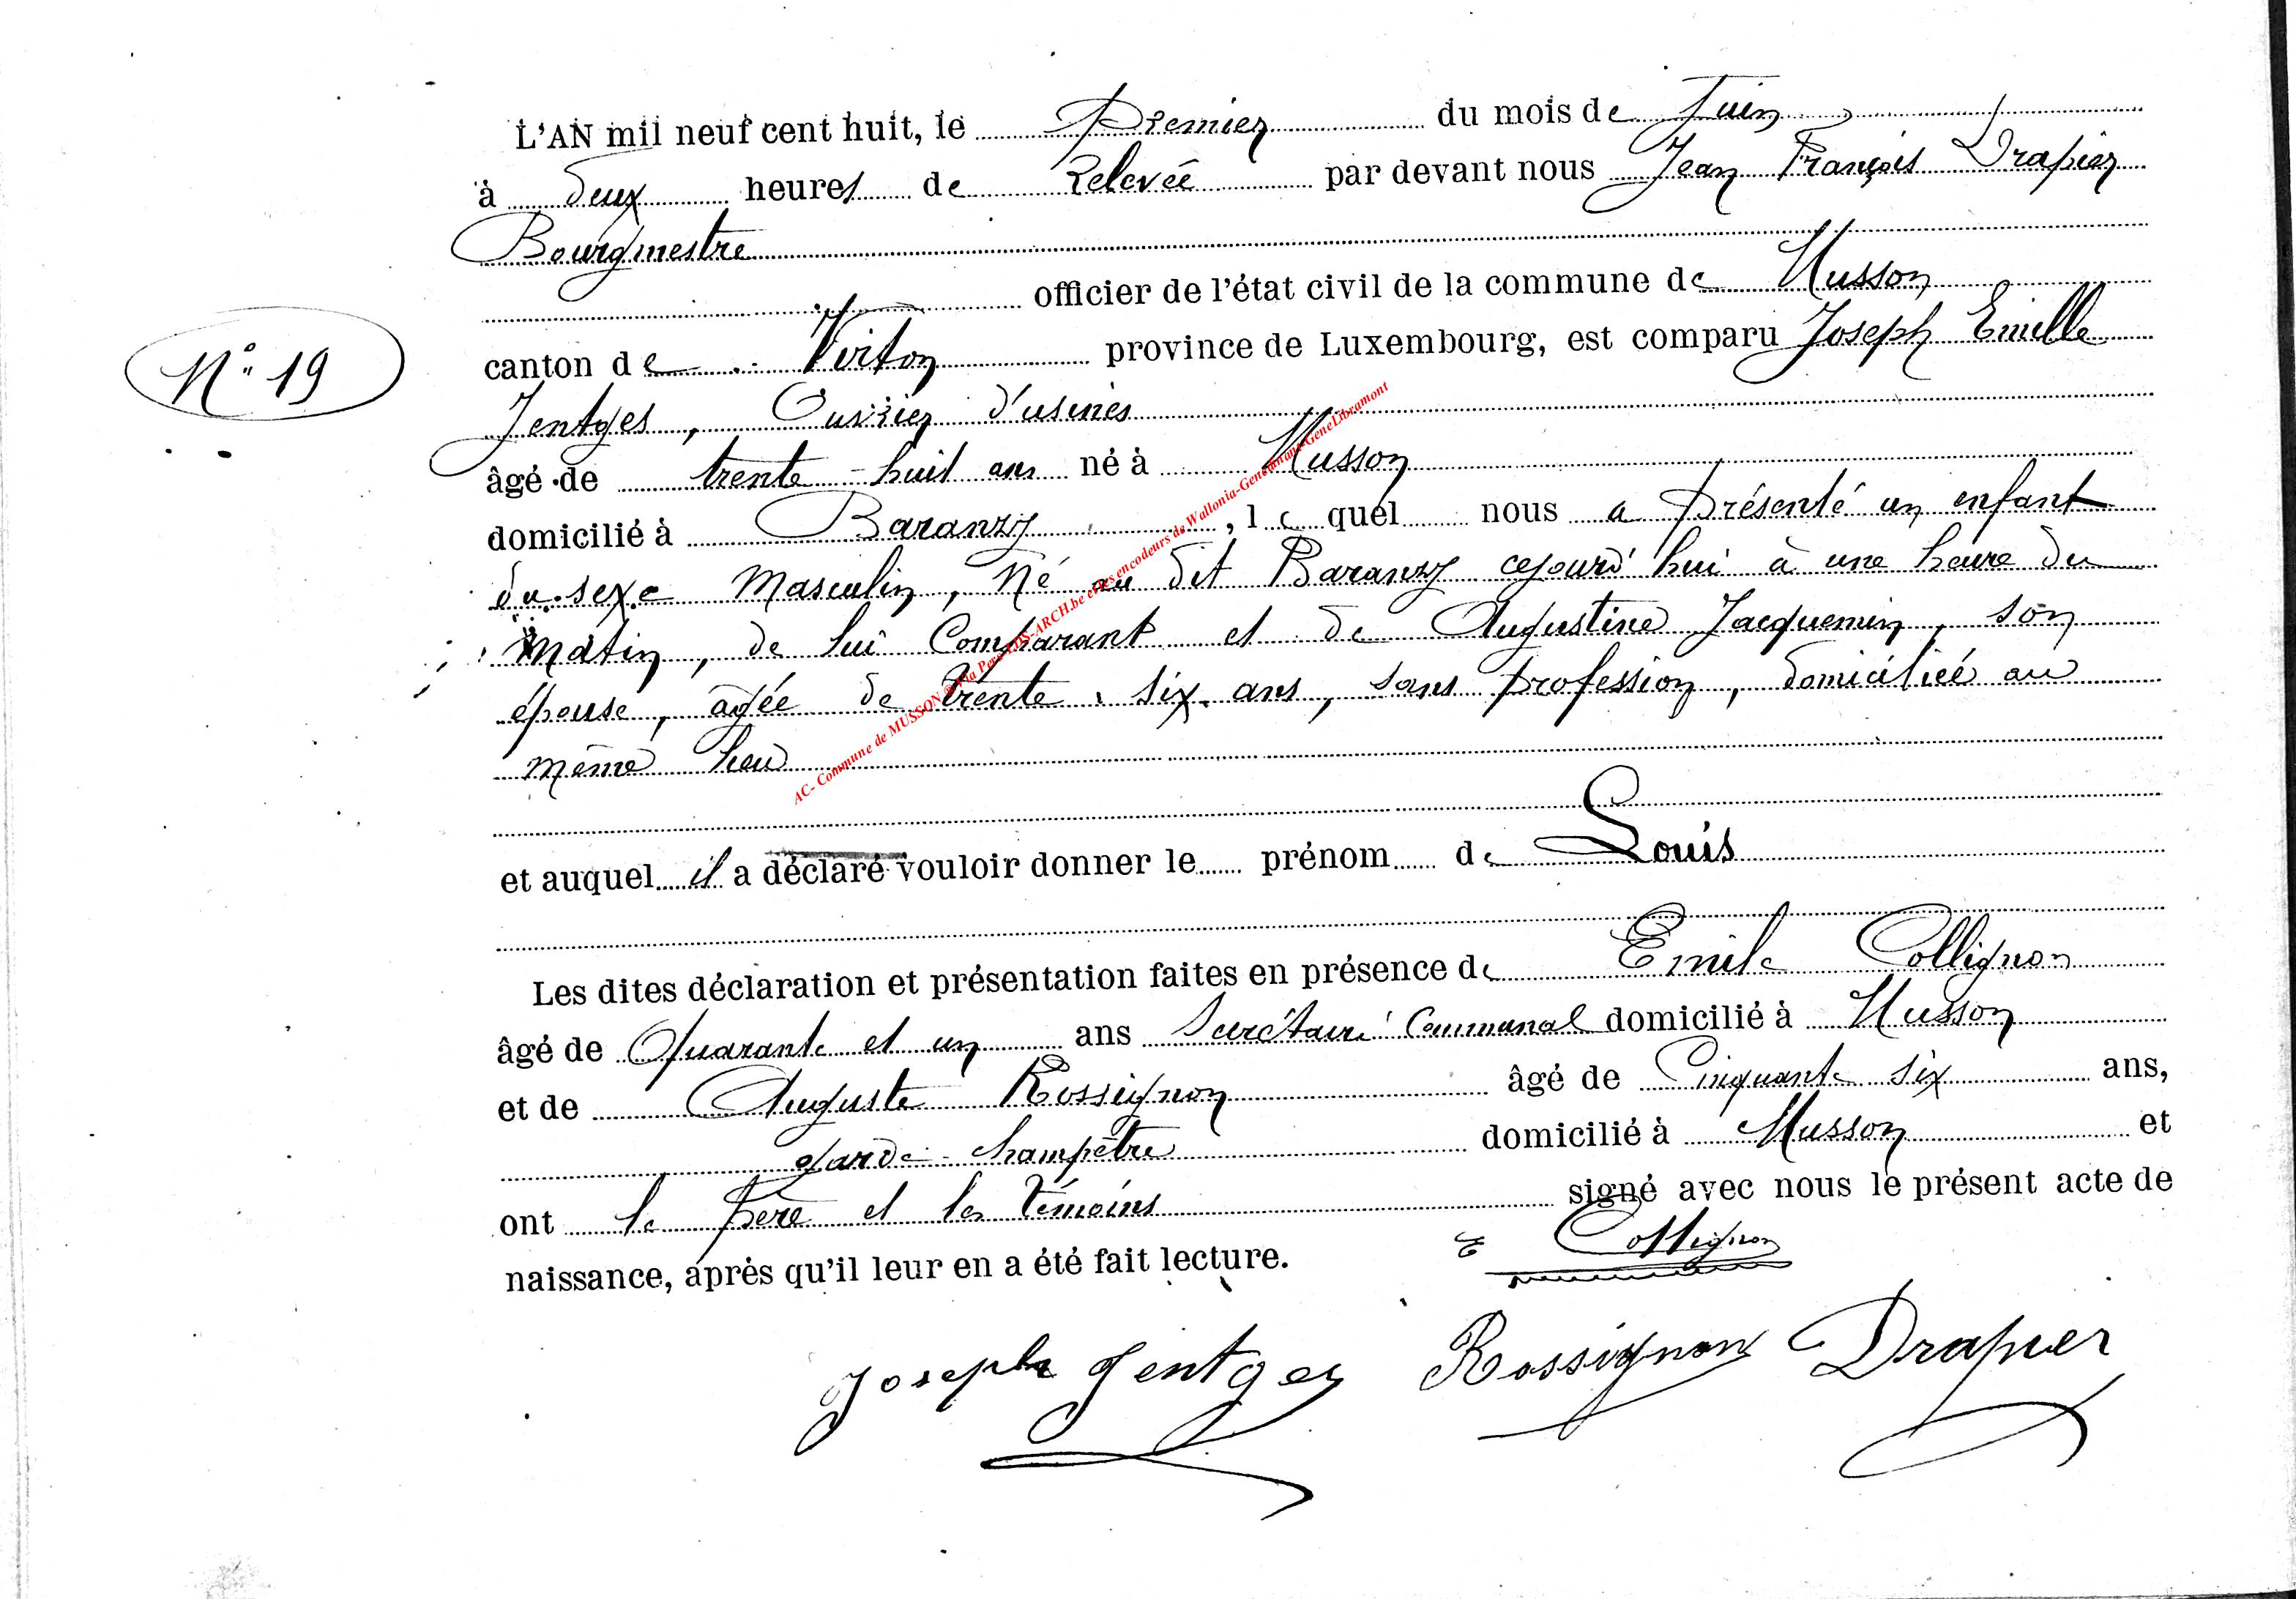 L'AN mil neuf cent huit, le Premier du mois de Juin
à deux heures de Relevée par devant nous Jean François Drapier
Bourgmestre
officier de l'état civil de la commune de Musson
N° 19
canton de Virton province de Luxembourg, est comparu Joseph Emille
Jentges, Ouvrier d'usines
âgé de trente-huit ans né à Musson
domicilié à Baranzy, lequel nous a présenté un enfant
du sexe Masculin, Né au dit Baranzy cejourd'hui à une heure du
Matin, de lui Comparant et de Augustine Jacquemin, son
épouse, agée de trente six ans, sans profession, domiciliée au
même lieu
et auquel il a déclaré vouloir donner le prénom de Louis
Les dites déclaration et présentation faites en présence de Emile Collignon
âgé de Quarante et un ans Secrétaire Communal domicilié à Musson
et de Auguste Rossignon âgé de Cinquante six ans,
garde-champêtre domicilié à Musson et
ont le père et les témoins signé avec nous le présent acte de
naissance, après qu'il leur en a été fait lecture.
E Collignon
Joseph Jentges Rossignon Drapier
AC- Commune de MUSSON @ Via Pers-EDS-ARCH.be et les encodeurs de Wallonia-Geneamant-GeneLibramont